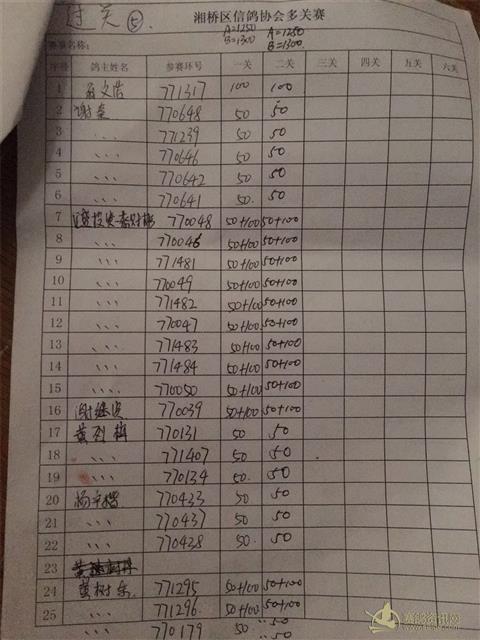 过关 ⑤
湘桥区信鸽协会多关赛
A=1250 A=1250
B=1300 B=1300
赛项名称:
序号 鸽主姓名 参赛环号 一关 二关 三关 四关 五关 六关
1 文浩 771317 100 100
2 谢 770648 50 50
3 、、、 771239 50 50
4 、、、 770646 50 50
5 、、、 770642 50 50
6 、、、 770641 50 50
7 770048 50+100 50+100
8 、、、 770046 50+100 50+100
9 、、、 771481 50+100 50+100
10 、、、 770049 50+100 50+100
11 、、、 771482 50+100 50+100
12 、、、 770047 50+100 50+100
13 、、、 771483 50+100 50+100
14 、、、 771484 50+100 50+100
15 、、、 770050 50+100 50+100
16 谢继 770039 50+100 50+100
17 黄烈 770131 50 50
18 、、、 771407 50 50
19 、、、 770134 50 50
20 杨 770433 50 50
21 、、、 770437 50 50
22 、、、 770438 50 50
23
24 黄树 771295 50+100 50+100
25 、、、 771296 50+100 50+100
、、、 770179 50 50
50
赛鸽资讯网